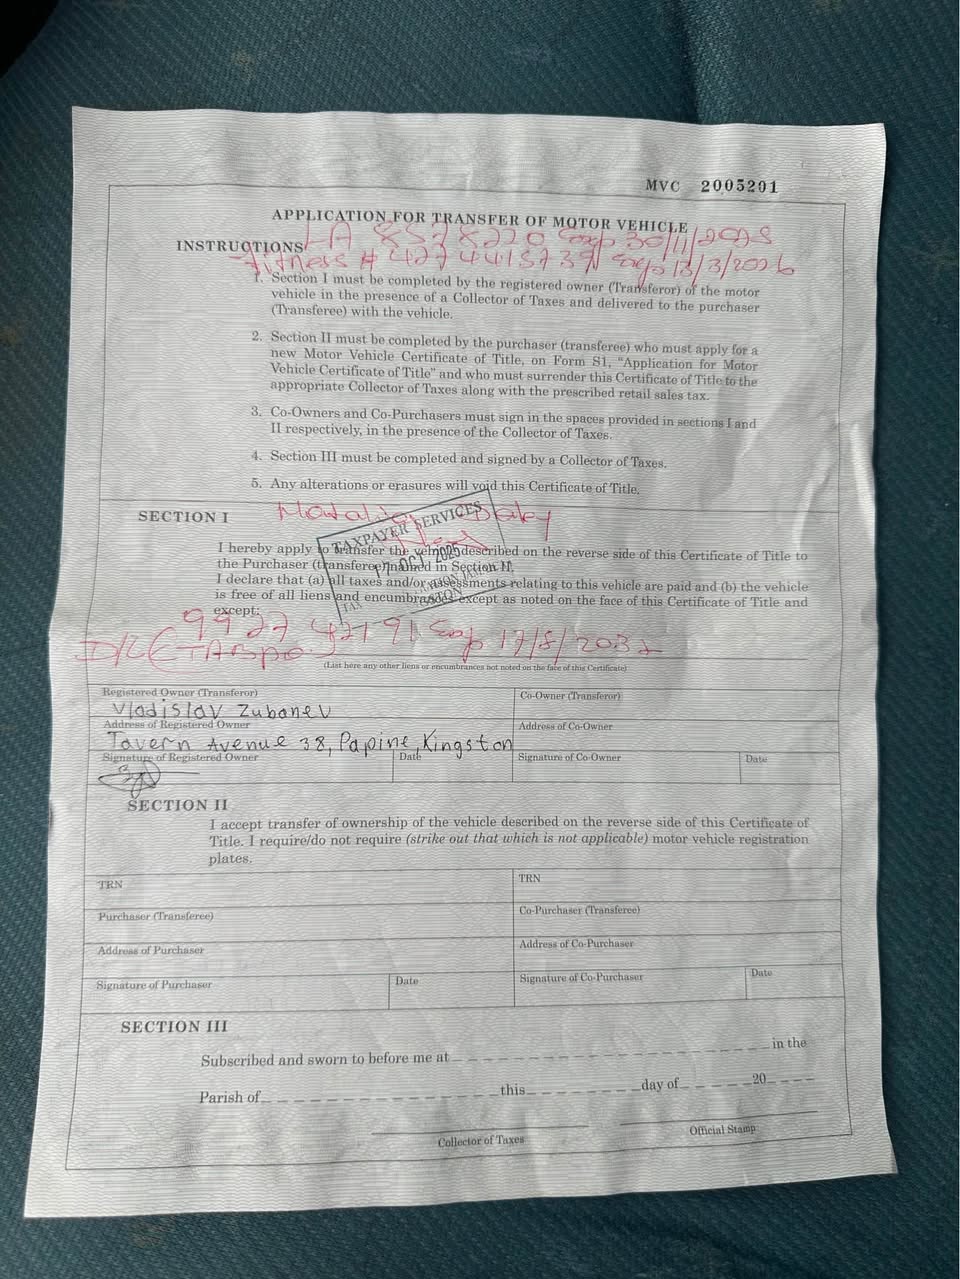 MVC 2005201
APPLICATION FOR TRANSFER OF MOTOR VEHICLE
LA 8578220 Exp 30/11/2025
INSTRUCTIONS
Fitness # Exp 13/3/2026
1. Section I must be completed by the registered owner (Transferor) of the motor
vehicle in the presence of a Collector of Taxes and delivered to the purchaser
(Transferee) with the vehicle.
2. Section II must be completed by the purchaser (transferee) who must apply for a
new Motor Vehicle Certificate of Title, on Form S1, “Application for Motor
Vehicle Certificate of Title” and who must surrender this Certificate of Title to the
appropriate Collector of Taxes along with the prescribed retail sales tax.
3. Co-Owners and Co-Purchasers must sign in the spaces provided in sections I and
II respectively, in the presence of the Collector of Taxes.
4. Section III must be completed and signed by a Collector of Taxes.
5. Any alterations or erasures will void this Certificate of Title.
SECTION I
TAXPAYER SERVICES
17 OCT 2025
TAX
I hereby apply to transfer the vehicle described on the reverse side of this Certificate of Title to
the Purchaser (transferee) named in Section II.
I declare that (a) all taxes and/or assessments relating to this vehicle are paid and (b) the vehicle
is free of all liens and encumbrances except as noted on the face of this Certificate of Title and
except:
Exp 17/8/2032
(List here any other liens or encumbrances not noted on the face of this Certificate)
Registered Owner (Transferor) Co-Owner (Transferor)
Vladislav Zubanev
Address of Registered Owner Address of Co-Owner
Tavern Avenue 38, Papine, Kingston
Signature of Registered Owner Date Signature of Co-Owner Date
SECTION II
I accept transfer of ownership of the vehicle described on the reverse side of this Certificate of
Title. I require/do not require (strike out that which is not applicable) motor vehicle registration
plates.
TRN TRN
Purchaser (Transferee) Co-Purchaser (Transferee)
Address of Purchaser Address of Co-Purchaser
Signature of Purchaser Date Signature of Co-Purchaser Date
SECTION III
Subscribed and sworn to before me at in the
Parish of this day of 20
Collector of Taxes Official Stamp